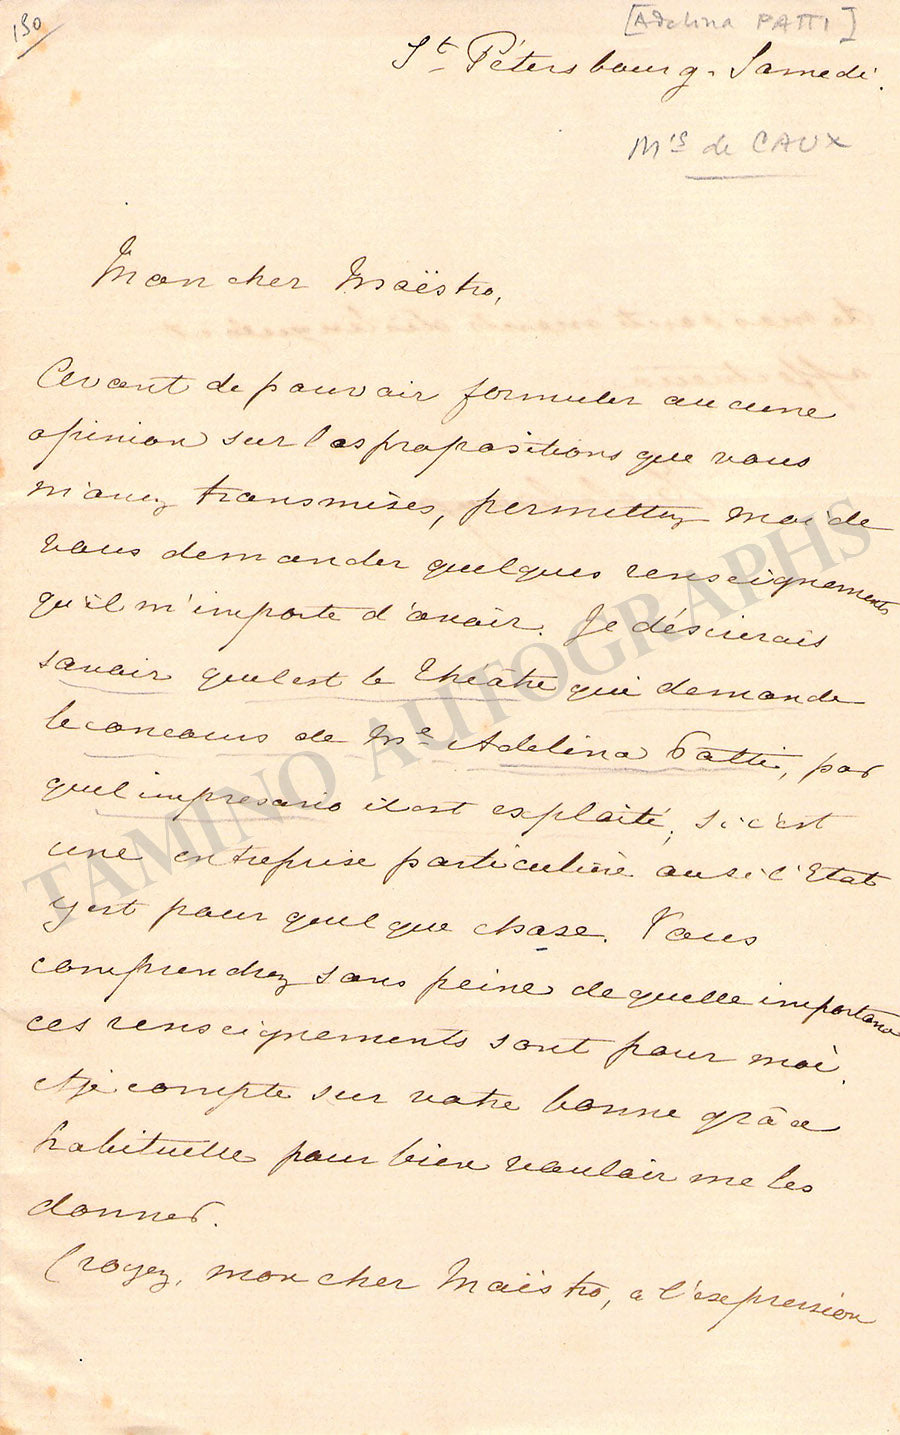 190
[Adelina PATTI]
St Pétersbourg. Samedi.
Mis de CAUX
Mon cher Maëstro,
Avant de pouvoir formuler aucune
opinion sur les propositions que vous
m'avez transmises, permettez moi de
vous demander quelques renseignements
qu'il m'importe d'avoir. Je désirerais
savoir quel est le Théâtre qui demande
le concours de Me Adelina Patti, par
quel impresario il est exploité, si c'est
une entreprise particulière ou si l'Etat
y est pour quelque chose. Vous
comprendrez sans peine de quelle importance
ces renseignements sont pour moi.
et je compte sur votre bonne grâce
habituelle pour bien vouloir me les
donner.
Croyez, mon cher Maëstro, a l'expression
TAMINO AUTOGRAPHS